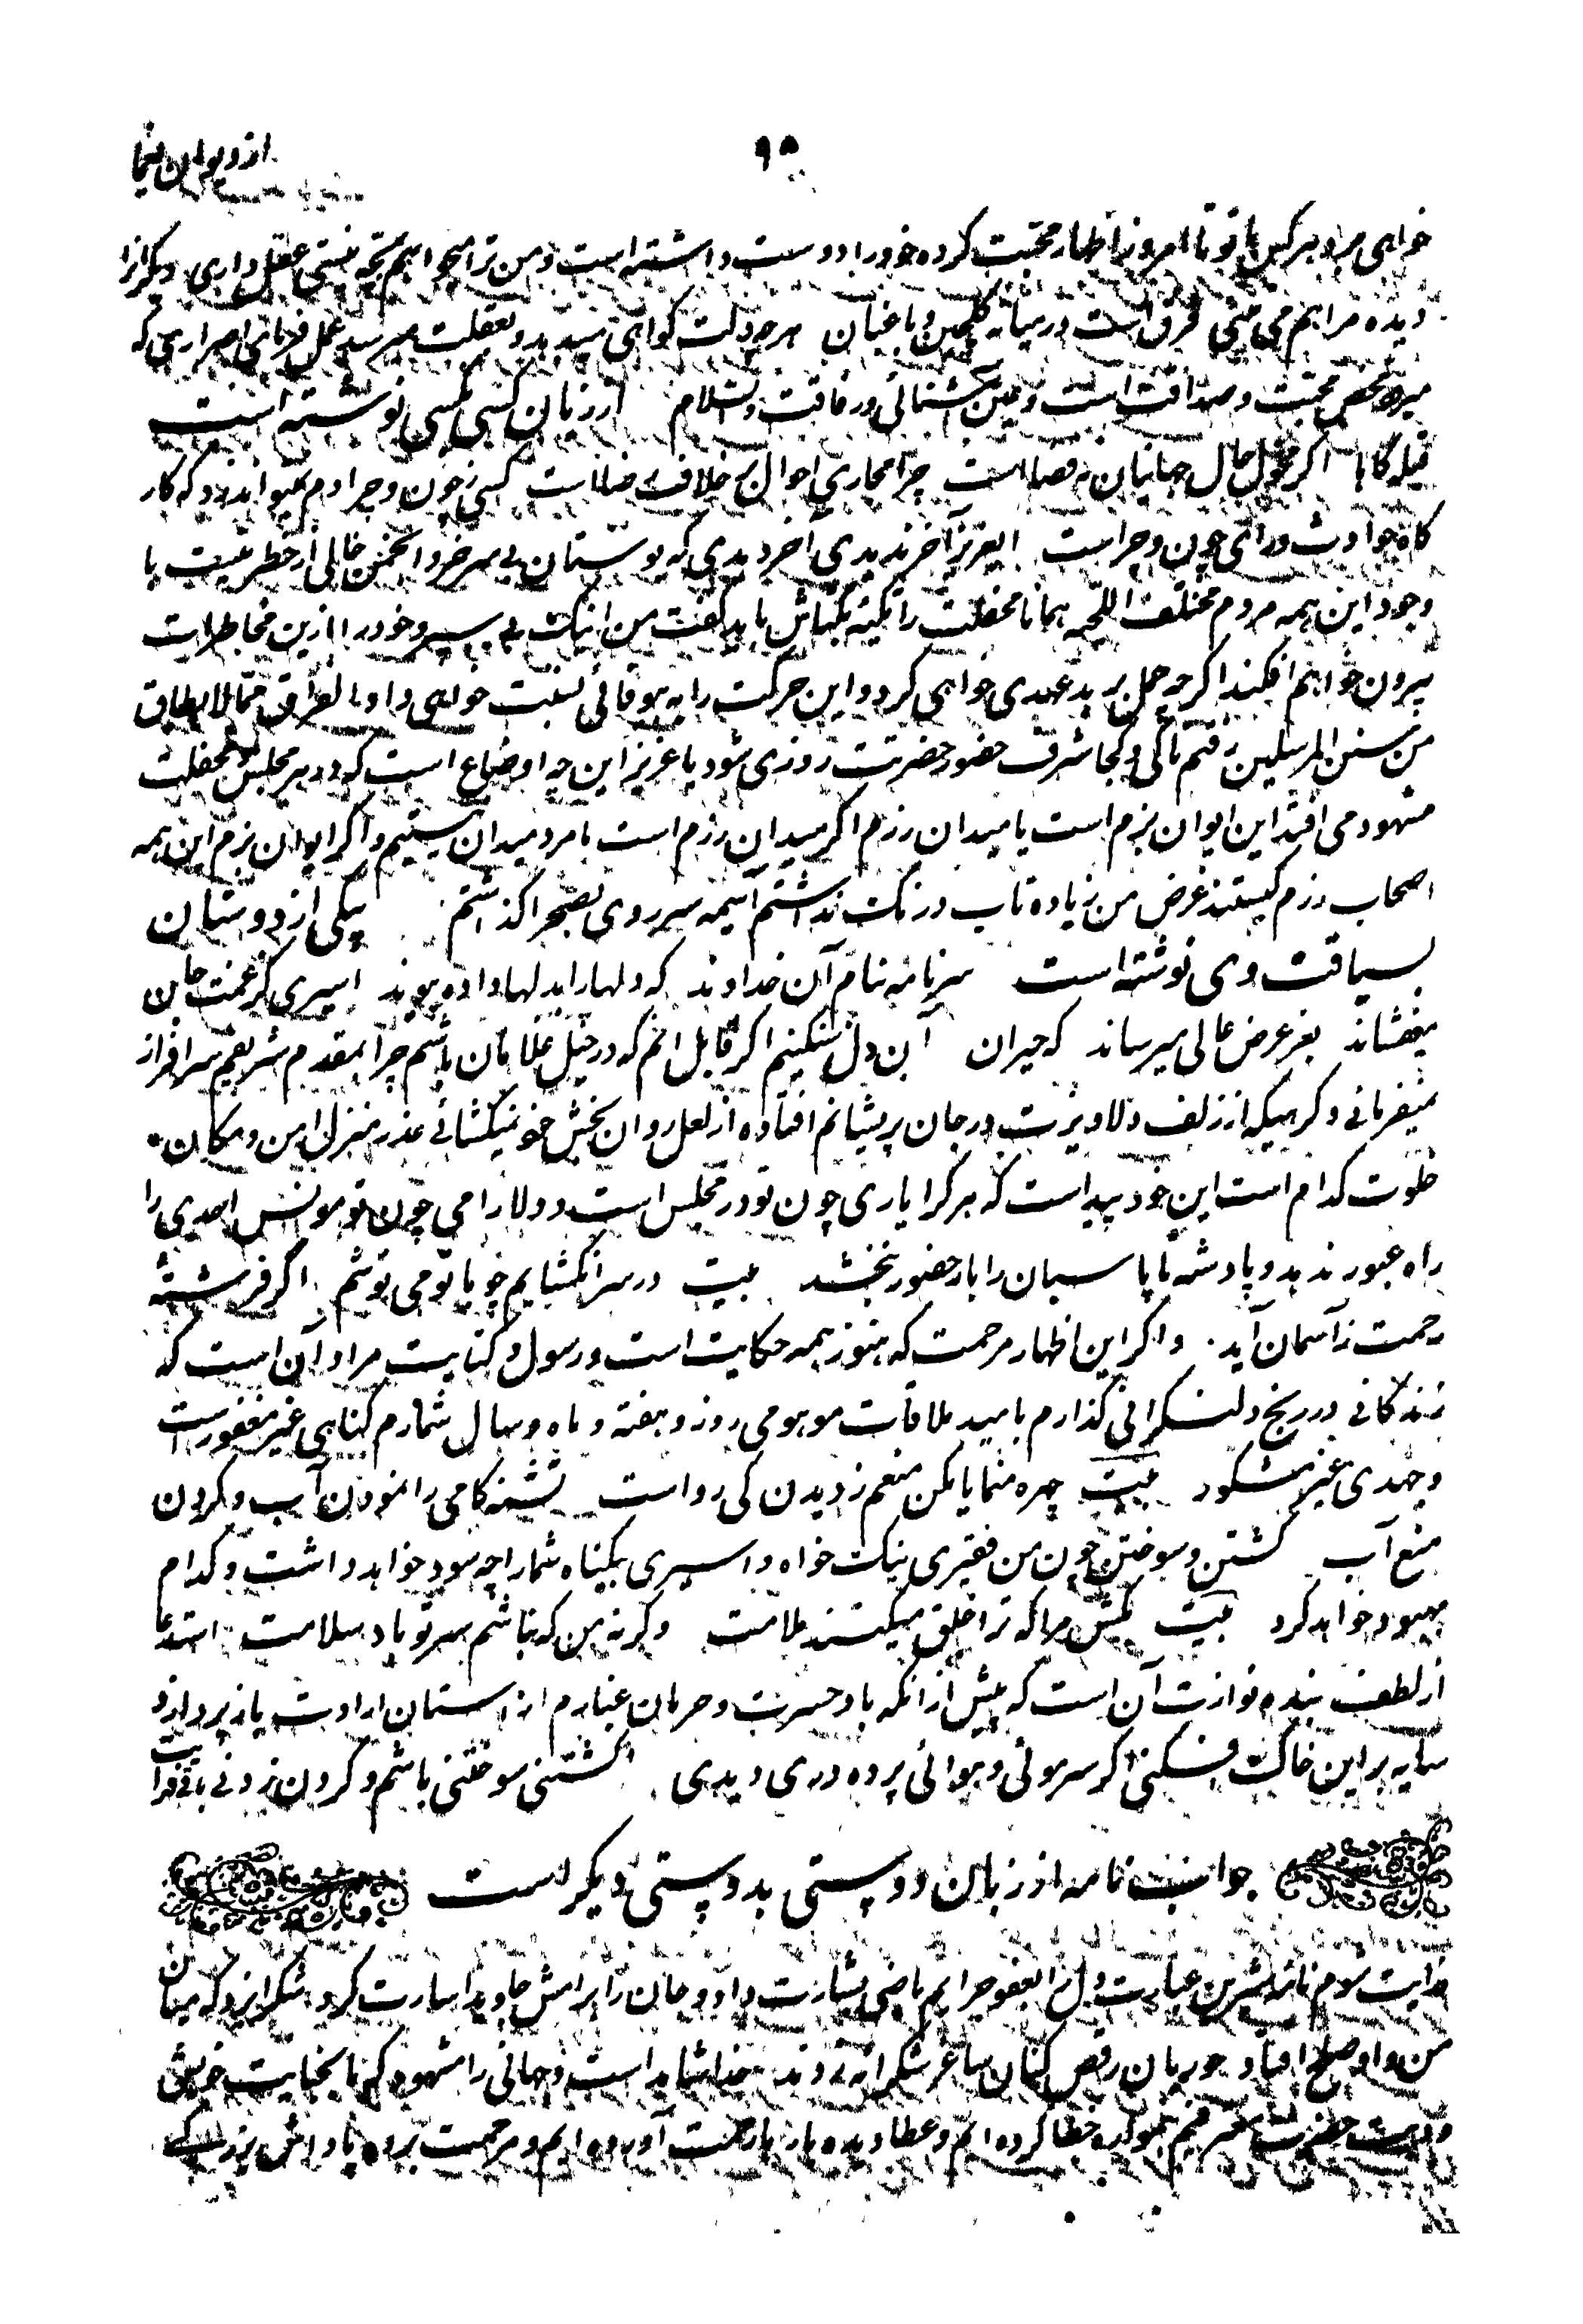 ۹۵
از دیوان یغما
خواهی مرا و هر کس با تو تا امروز اظهار محبت کرده خود را دوست داشته است و من ترا میخواهم بچه نیستی عقل داری دیگران را
دیده مرا هم می بینی فرق است در میانه گلچین و باغبان هر چه دلت گواهی میدهد و بعقلت میرسد عمل فرمای اصراری که
میرود محض محبت و صداقت است و عین آشنائی و رفاقت والسلام از زبان کسی بکسی نوشته است
قبله گاها اگر محول حال جهانیان نه قضا است چرا مجاری احوال بر خلاف رضا است کسی ز چون و چرا دم نمیتواند زد که کار
گاه حوادث ورای چون و چراست ایعزیز آخر ندیدی آخر دیدی که بوستان بی سرخر و انجمن خالی از خطر نیست با
وجود این همه مردم مختلف اللحیه همانا محفلت را تکیه بکتاش باید گفت من اینک بی سر و خود را ازین مخاطرات
بیرون خواهم افکند اگر چه حمل بر بد عهدی خواهی کرد و این حرکت را به بیوفائی نسبت خواهی داد الفراق مما لا یطاق
من سنن المرسلین رفتم تا کی و کجا شرف حضور حضرتت روزی شود یا عزیز این چه اوضاع است که در هر مجلس و محفلت
مشهود می افتد این ایوان بزم است یا میدان رزم اگر میدان رزم است ما مرد میدان نیستیم و اگر ایوان بزم این همه
اصحاب رزم کیستند غرض من زیاده تاب درنگ نداشتم آسیمه سر روی بصحرا گذاشتم یکی از دوستان
بسیاقت وی نوشته است سر نامه بنام آن خداوند که دلها را بدلها داده پیوند اسیری کز غمت جان
میفشاند بعز عرض عالی میرساند که حیران آن دل سنگینم اگر قابل انم که در خیل غلامان باشم چرا بمقدم شریفم سرافراز
نمیفرمائی و گر هیکه از زلف دلاویزت در جان پریشانم افتاده از لعل روان بخش خود نمیگشائی عذر منزل امن و مکان
خلوت کدام است این خود پیداست که هر کرا یاری چون تو در مجلس است و دلارامی چون تو مونس احدی را
راه عبور ندهد و پادشه تا پاسبان را بار حضور نبخشد بیت در سرا نگشایم چو با تو می نوشم اگر فرشته
رحمت ز آسمان آید و اگر این اظهار مرحمت که هنوز همه حکایت است و رسول و کتابت مراد آن است که
زندگانی در رنج دل نگرانی گذارم بامید ملاقات موهومی روز و هفته و ماه و سال شمارم گناهی غیر مغفورست
و جهدی غیر مشکور بیت چهره منما یا مکن منعم ز دیدن کی رواست تشنه کامی را نمودن آب و کردن
منع آب کشتن و سوختن چون من فقیری نیک خواه و اسیری بیگناه شما را چه سود خواهد داشت و کدام
بهبود خواهد کرد بیت بکش مرا که ترا خلق میکنند ملامت و گرنه من که نباشم سر تو باد سلامت استدعا
از لطف بنده نوازت آن است که پیش از آنکه باد حسرت و حرمان غبارم از آستان ارادت باز پردازد
سایه بر این خاک فکنی اگر سر موئی و هوائی پرده دری دیدی کشتنی سوختنی باشم و گردن زدنی
جواب نامه از زبان دوستی بدوستی دیگر است
من و او صلح افتاد حوریان رقص کنان ساغر شکرانه زدند خدا شاهد است و جهانی را مشهود که تا بخنایت خویش
خطا کرده ام و عطا دیده بار آورده ایم و مرحمت برده پاداش